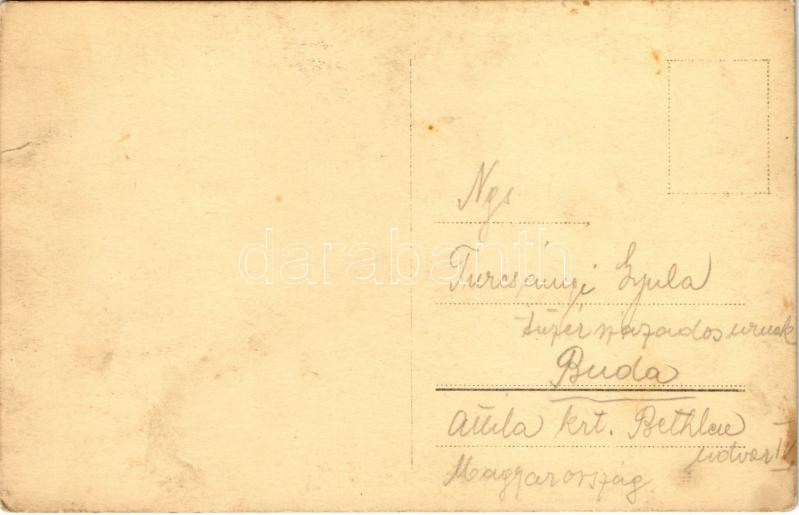 Ngs
darabanth
Turcsányi Gyula
tüzér százados urnak
Buda
Attila krt. Bethlen
udvar
Magyarország